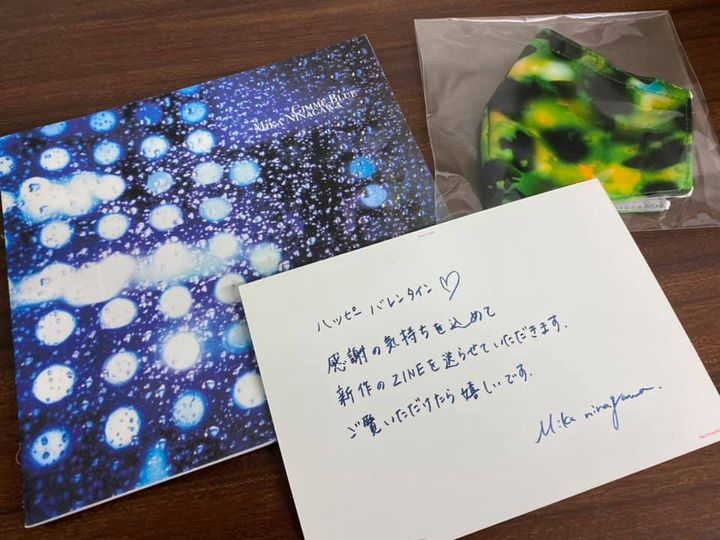 GIMME BLUE
MIKA NINAGAWA
ハッピー バレンタイン♡
感謝の気持ちを込めて
新作のZINEを送らせていただきます.
ご覧いただけたら嬉しいです.
Mika ninagawa.